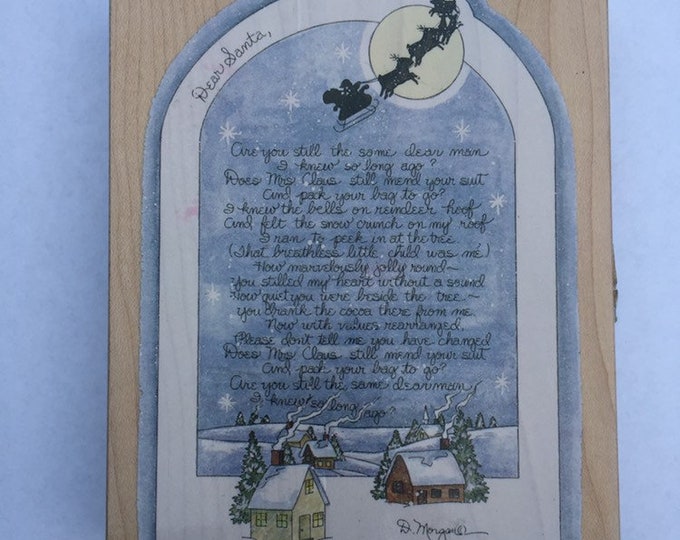 Dear Santa,
Are you still the same dear man
I knew so long ago?
Does Mrs Claus still mend your suit
And pack your bag to go?
I knew the bells on reindeer hoof
And felt the snow crunch on my roof
I ran to peek in at the tree
(That breathless little child was me)
How marvelously jolly round~
you stilled my heart without a sound
How quiet you were beside the tree~
you drank the cocoa there from me
Now with values rearranged,
Please don't tell me you have changed
Does Mrs Claus still mend your suit
And pack your bag to go?
Are you still the same dear man
I knew so long ago?
D. Morgan ©